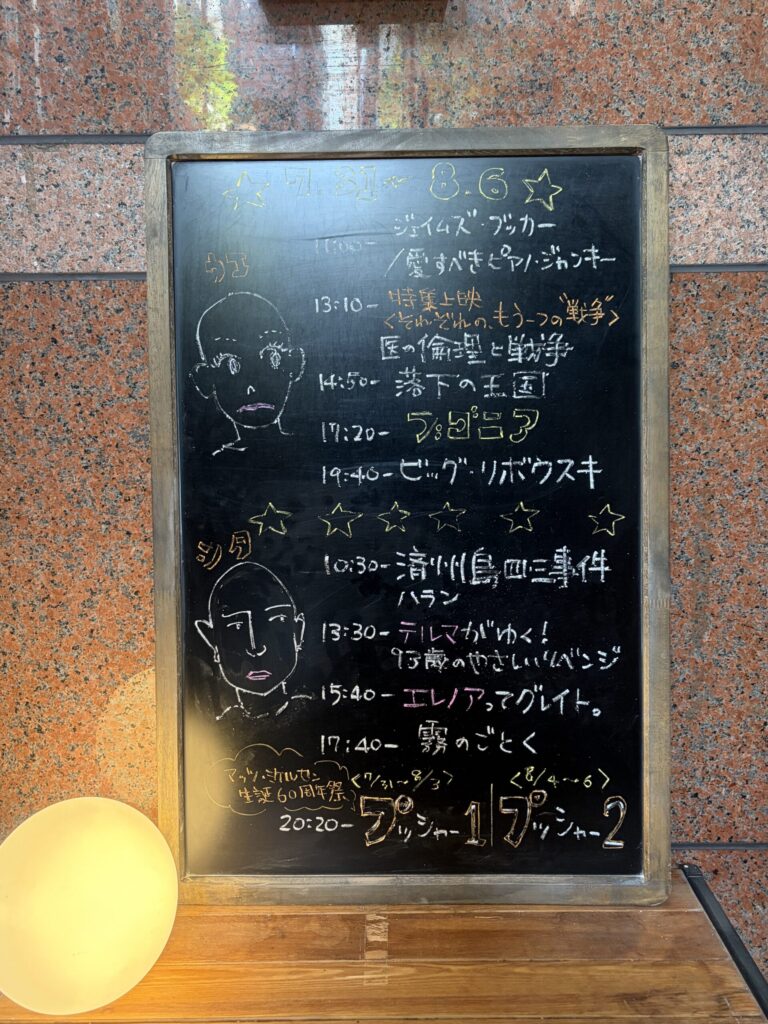 ☆ 7.31〜8.6 ☆
ウエ
11:00- ジェイムズ・ブッカー
/愛すべきピアノ・ジャンキー
13:10- 特集上映
<それぞれの、もう一つの"戦争">
医の倫理と戦争
14:50- 落下の王国
17:20- ラ・ピニア
19:40- ビッグ・リボウスキ
☆ ☆ ☆ ☆ ☆ ☆
シタ
10:30- 済州島四三事件
ハラン
13:30- テルマがゆく!
93歳のやさしいリベンジ
15:40- エレノアってグレイト。
17:40- 霧のごとく
マッツ・ミカルセン
生誕60周年祭
<7/31〜8/3> <8/4〜6>
20:20- プッシャー1|プッシャー2